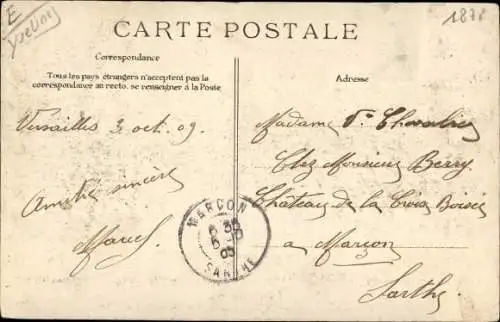 E
Yvelines
1878
CARTE POSTALE
Correspondance
Tous les pays étrangers n'acceptent pas la
correspondance au recto. se renseigner à la Poste
Adresse
Versailles 3 oct. 09.
Amitié sincère
Marcel
Madame Vve Chevalier
Chez Monsieur Berry
Château de la Croix Boisée
à Marçon
Sarthe
MARÇON
SARTHE